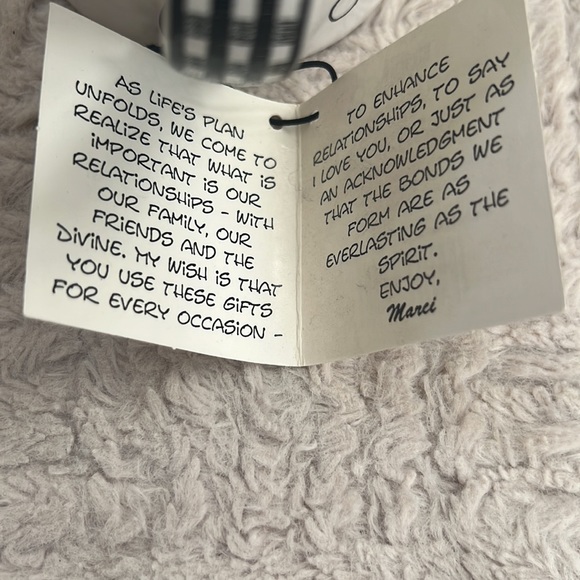 AS LIFE'S PLAN
UNFOLDS, WE COME TO
REALIZE THAT WHAT IS
IMPORTANT IS OUR
RELATIONSHIPS - WITH
OUR FAMILY, OUR
FRIENDS AND THE
DIVINE. MY WISH IS THAT
YOU USE THESE GIFTS
FOR EVERY OCCASION -
TO ENHANCE
RELATIONSHIPS, TO SAY
I LOVE YOU, OR JUST AS
AN ACKNOWLEDGMENT
THAT THE BONDS WE
FORM ARE AS
EVERLASTING AS THE
SPIRIT.
ENJOY,
Marci